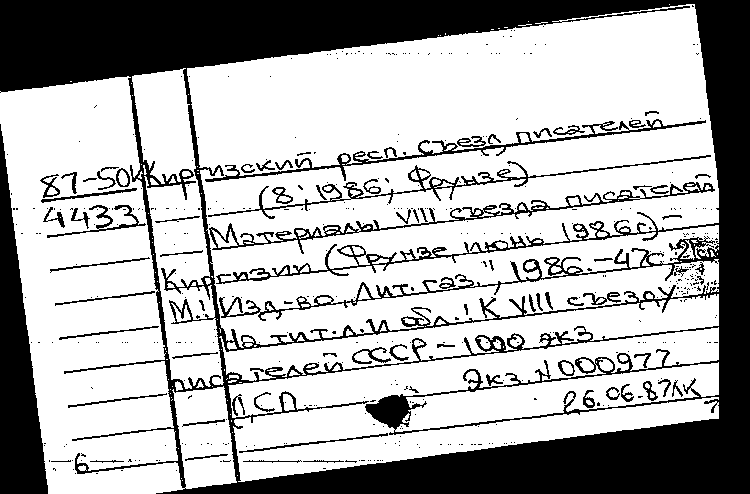 87-50к Киргизский респ. съезд писателей
4433 (8; 1986; Фрунзе).
Материалы VIII съезда писателей
Киргизии (Фрунзе, июнь 1986г.).—
М.: Изд-во „Лит. газ.", 1986.—47с; 21см
На тит.л. и обл.: К VIII съезду
писателей СССР.—1000 экз.
ДСП. Экз. N 000977.
26.06.87ЛК
6